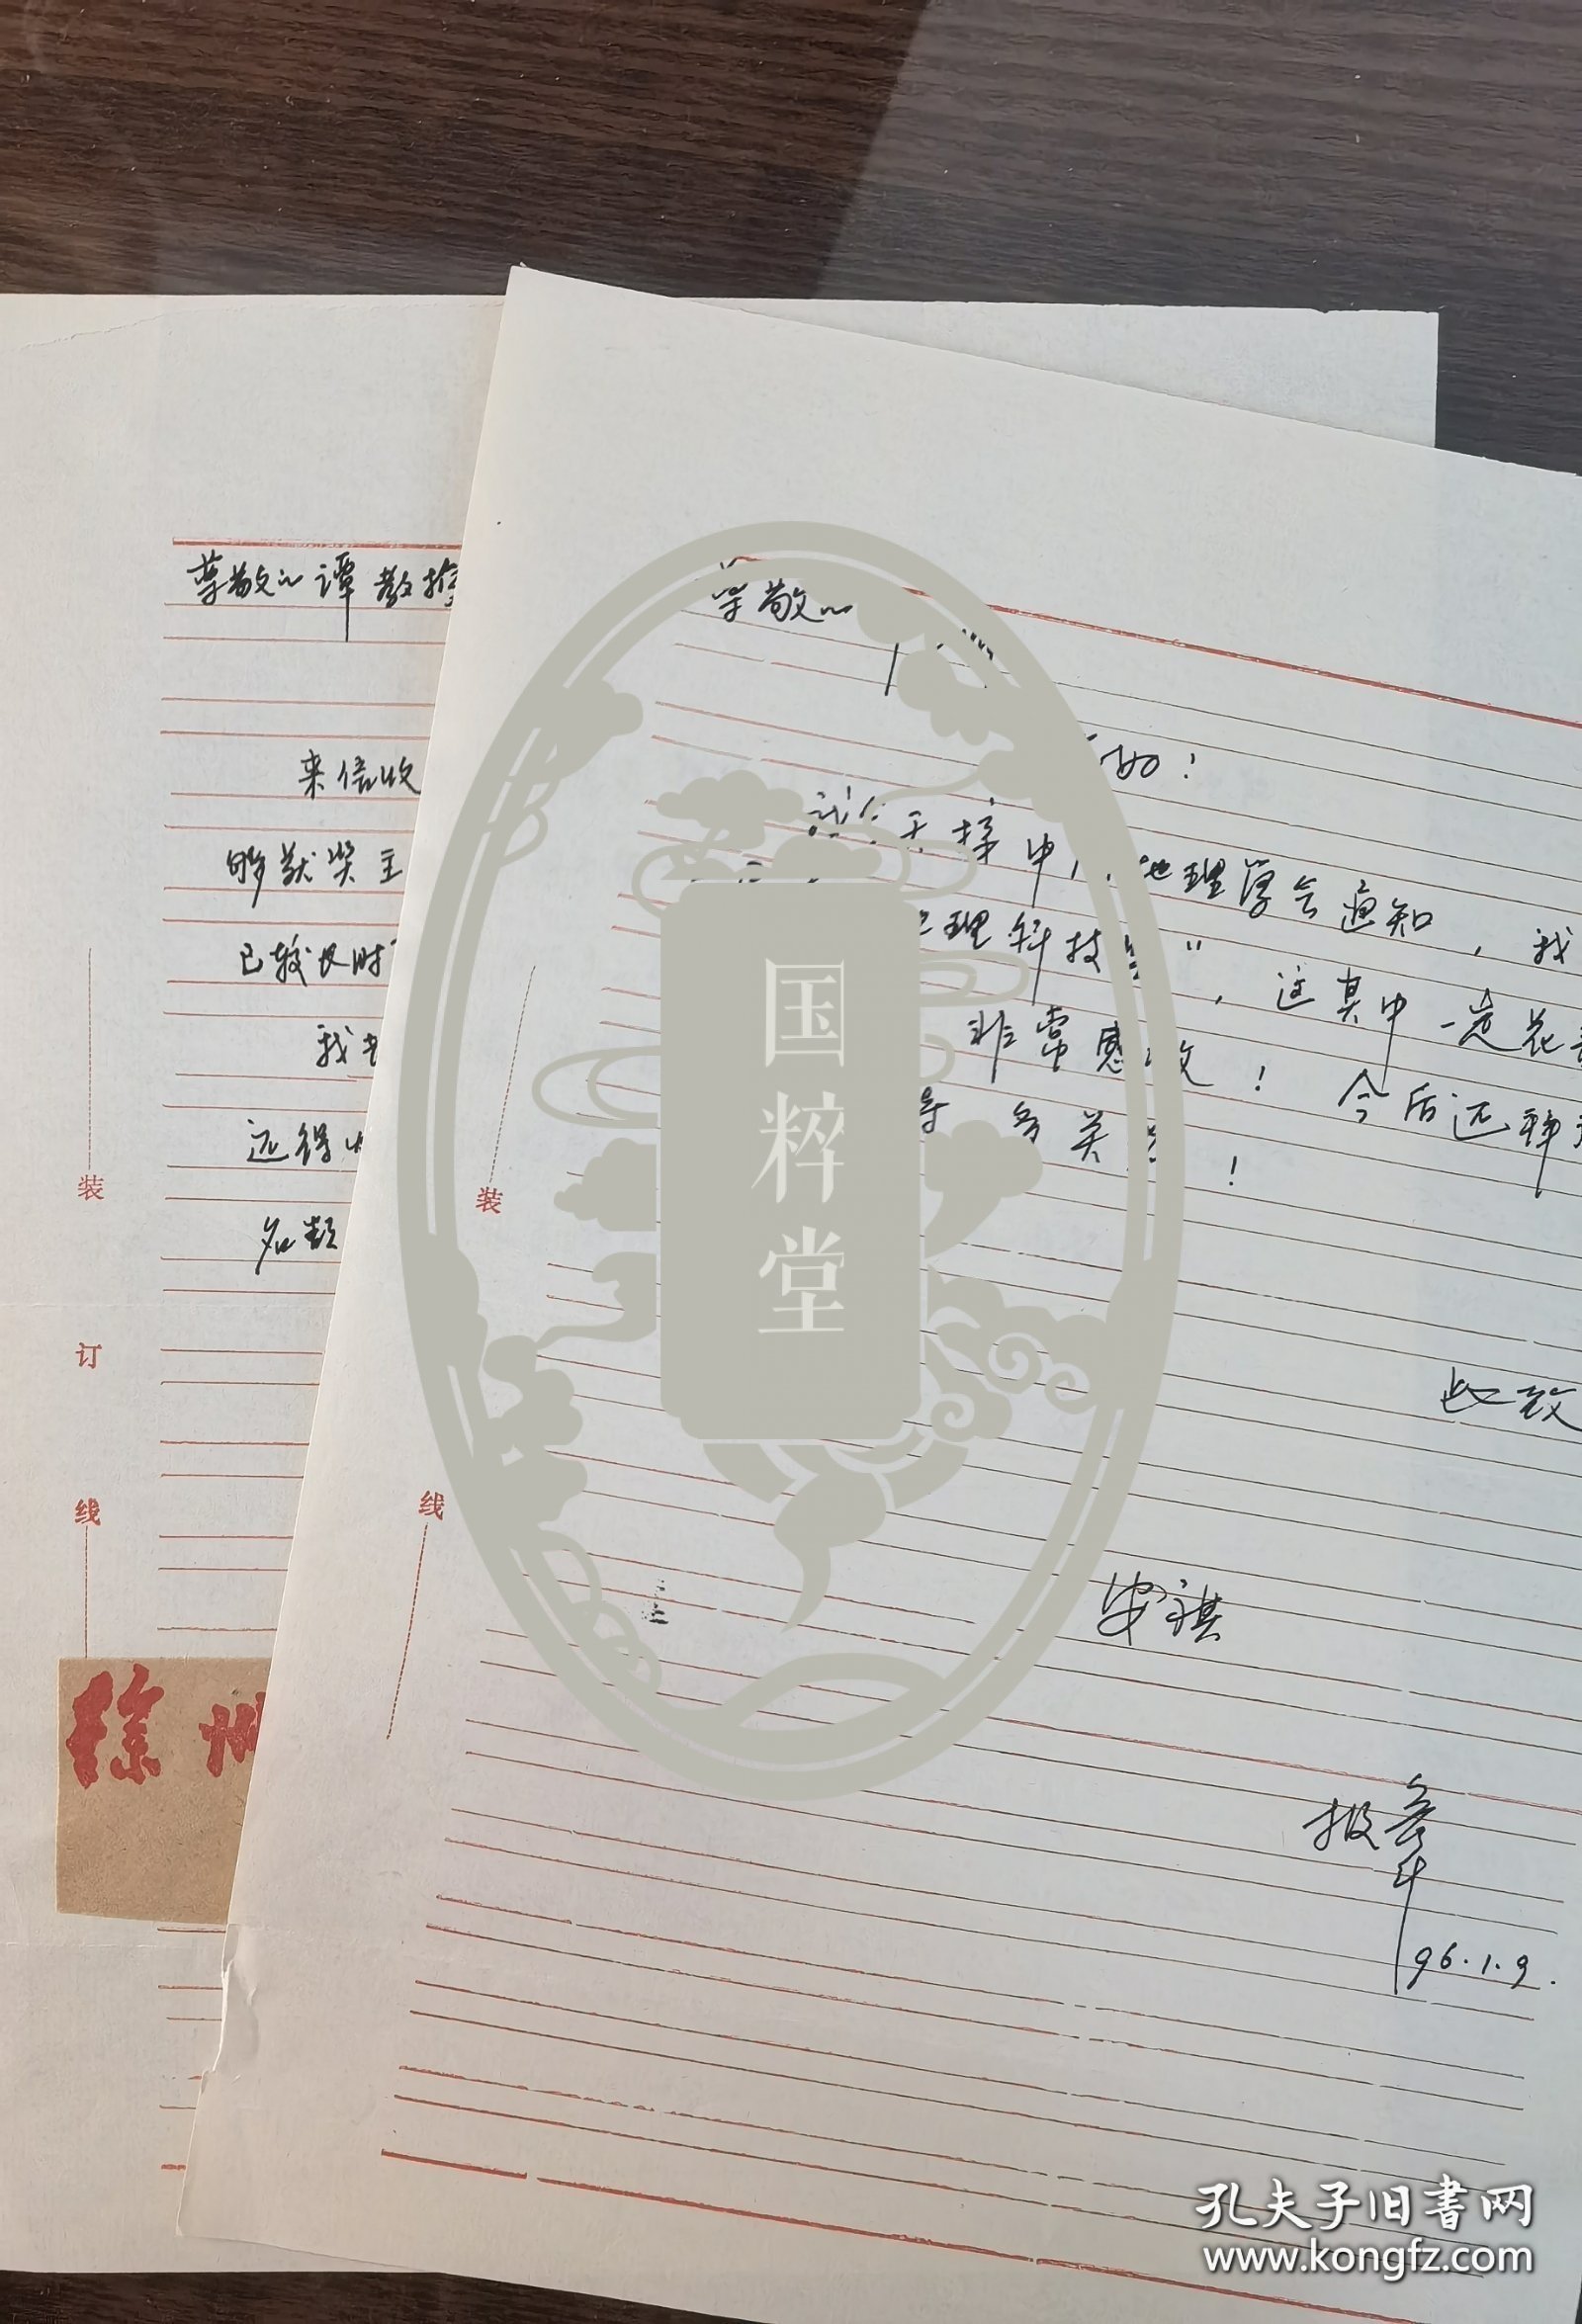 尊敬的谭教授
来信收
够获奖主
已较长时
我
还得
名额
装
订
线
徐州
尊敬的
好：
天接中 地理学会通知，我
理科技 ”，这其中一定花
非常感 ！ 今后还
多关 ！
此致
安祺
报
96.1.9.
装
线
国粹堂
孔夫子旧书网
www.kongfz.com